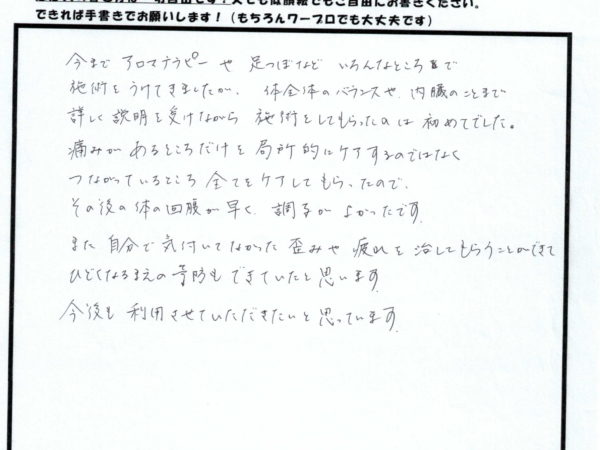 できれば手書きでお願いします！（もちろんワープロでも大丈夫です）
今まで アロマテラピー や 足つぼなど いろんなところで
施術をうけてきましたが、 体全体のバランスや、内臓のことまで
詳しく説明を受けながら 施術をしてもらったのは 初めてでした。
痛みがあるところだけを局所的にケアするのではなく
つながっているところ 全てをケアしてもらったので、
その後の体の回腹が早く、調子がよかったです
また 自分で気付いてなかった 歪みや 疲れを治してもらうことができて
ひどくなるまえの予防もできていたと思います
今後も利用させていただきたいと思っています